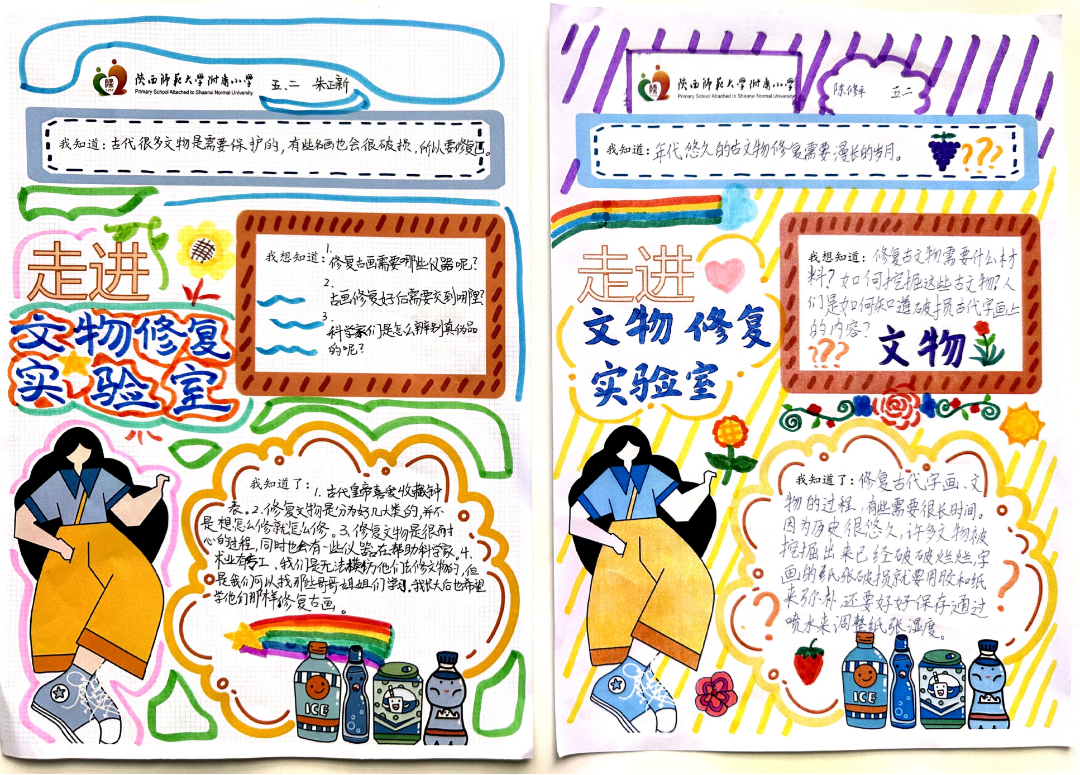 陕西师范大学附属小学
Primary School Attached to Shaanxi Normal University
五.二 朱正新
我知道：古代很多文物是需要保护的，有些名画也会很破损，所以要修复它。
走进
文物修复
实验室
我想知道：
1.
修复古画需要哪些仪器呢？
2.
古画修复好后需要交到哪里？
3.
科学家们是怎么辨别真伪品
的呢？
我知道了：1.古代皇帝喜爱收藏钟
表。2.修复文物是分为好几大类的，并不
是想怎么修就怎么修。3.修复文物是很耐
心的过程，同时也会有一些仪器在帮助科学家。4.
术业有专工，我们是无法模仿他们去修文物的，但
是我们可以找那些哥哥姐姐们学习，我长大后也希望
学他们那样修复古画。
ICE
陕西师范大学附属小学
Primary School Attached to Shaanxi Normal University
五二
我知道：年代悠久的古文物修复需要漫长的岁月。
???
走进
文物修复
实验室
我想知道：修复古文物需要什么材
料？如何挖掘这些古文物？人
们是如何知道破损古代字画上
的内容？
???
文物
我知道了：修复古代字画、文
物的过程，有些需要很长时间。
因为历史很悠久，许多文物被
挖掘出来已经破破烂烂，字
画的纸张破损就要用胶和纸
来弥补还要好好保存通过
喷水来调整纸张湿度。
?
?
ICE